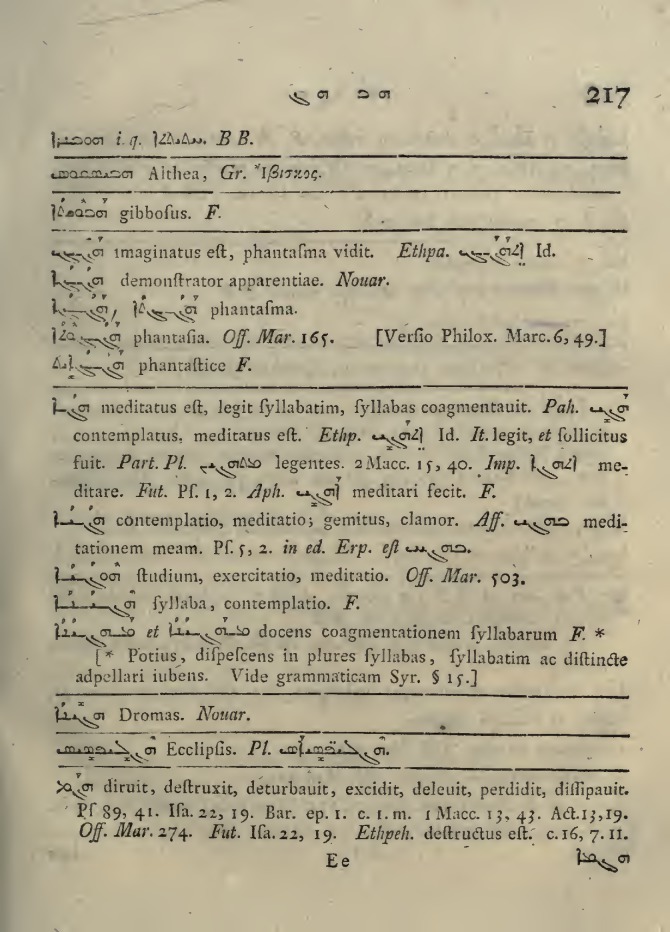 ܗܒ ܗܓ 217
i. q. B B.
Aithea, Gr. Ἰβισκος.
gibboſus. F.
ܗܓܓ imaginatus eſt, phantaſma vidit. Ethpa. ܐܬܗܓܓ Id.
ܗܓܓܐ demonſtrator apparentiae. Nouar.
ܗܓܓܐ, ܗܓܓܬܐ phantaſma.
ܗܓܓܘܬܐ phantaſia. Off. Mar. 165. [Verſio Philox. Marc. 6, 49.]
ܗܓܓܐܝܬ phantaſtice F.
ܗܓܐ meditatus eſt, legit ſyllabatim, ſyllabas coagmentauit. Pah. ܗܓܝ
contemplatus, meditatus eſt. Ethp. ܐܬܗܓܝ Id. It. legit, et ſollicitus
fuit. Part. Pl. ܡܬܗܓܝܢ legentes. 2 Macc. 15, 40. Imp. ܐܬܗܓܐ me-
ditare. Fut. Pſ. 1, 2. Aph. ܐܗܓܝ meditari fecit. F.
contemplatio, meditatio; gemitus, clamor. Aff. medi-
tationem meam. Pſ. 5, 2. in ed. Erp. eſt
ܗܘܓܝܐ ſtudium, exercitatio, meditatio. Off. Mar. 503.
ܗܓܝܢܐ ſyllaba, contemplatio. F.
ܡܗܓܝܢܐ et ܡܗܓܝܢܐ docens coagmentationem ſyllabarum F. *
[* Potius, diſpeſcens in plures ſyllabas, ſyllabatim ac diſtincte
adpellari iubens. Vide grammaticam Syr. § 15.]
ܗܓܝܢܐ Dromas. Nouar.
Ecclipſis. Pl.
ܗܓܡ diruit, deſtruxit, deturbauit, excidit, deleuit, perdidit, diſſipauit.
Pſ 89, 41. Iſa. 22, 19. Bar. ep. 1. c. 1. m. 1 Macc. 13, 43. Act. 13, 19.
Off. Mar. 274. Fut. Iſa. 22, 19. Ethpeh. deſtructus eſt. c. 16, 7. 11.
E e ܗܓܡܐ